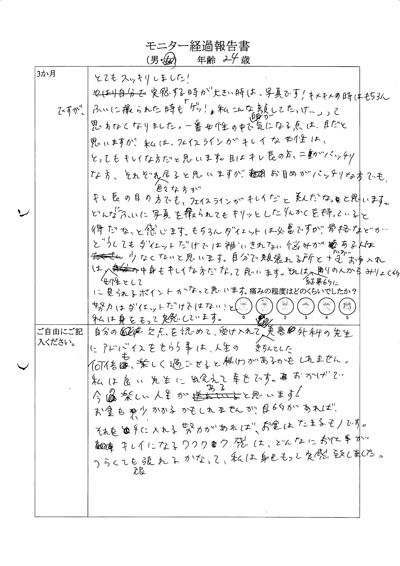 モニター経過報告書
(男・女) 年齢 24歳
3か月
とてもスッキリしました!
やはり自分で実感する時が大きい時は、写真です!キメキメの時はもちろん
ですが、ふいに撮られた時も「ゲッ!」私こんな顔してたっけ…って
思わなくなりました。一番女性の中で気になる点は、目だと
思いますが、私は、フェイスラインがキレイな女性は、
とってもキレイな方だと思います。目はキレ長の方、二重がパッチリ
な方、それぞれ居ると思いますが、お目めがパッチリな方でも、
色々な方が
キレ長の目の方でも、フェイスラインがキレイだと美人だなぁと思います。
どんなふいに写真を撮られてもキリッとしたりんかくを持っていると
得だなっと感じます。もちろんダイエットは必要ですが骨格などが
どうしてもダイエットだけでは補いきれない悩みがある人は
少なくないと思います。自分で頑張れる所と+お手入れ
は、中身もキレイな方だなって思います。周りの人からみりょく的
女性として 結果的に
に見られるポイントかなって思います。痛みの程度はどのくらいでしたか?
努力はダイエットだけではない!と
私は身をもって実感しています。
0 1 2 3 4 5
ご自由にご記入ください。
自分の欠点を認めて、受け入れて、美容外科の先生
にアドバイスをもらう事は、人生の きちんとした
何倍も、楽しく過ごせると秘けつがあるかもしれません。
私は良い先生に出会えて幸せです。おかげで
今の楽しい人生がある と思います!
お金も少しかかるかもしれませんが、自分があれば、
それを手に入れる努力があれば、お金はたまるモノです。
キレイになるワクワク感は、どんなにお仕事が
つらくても頑張れるかなって、私は身をもって実感致しました。